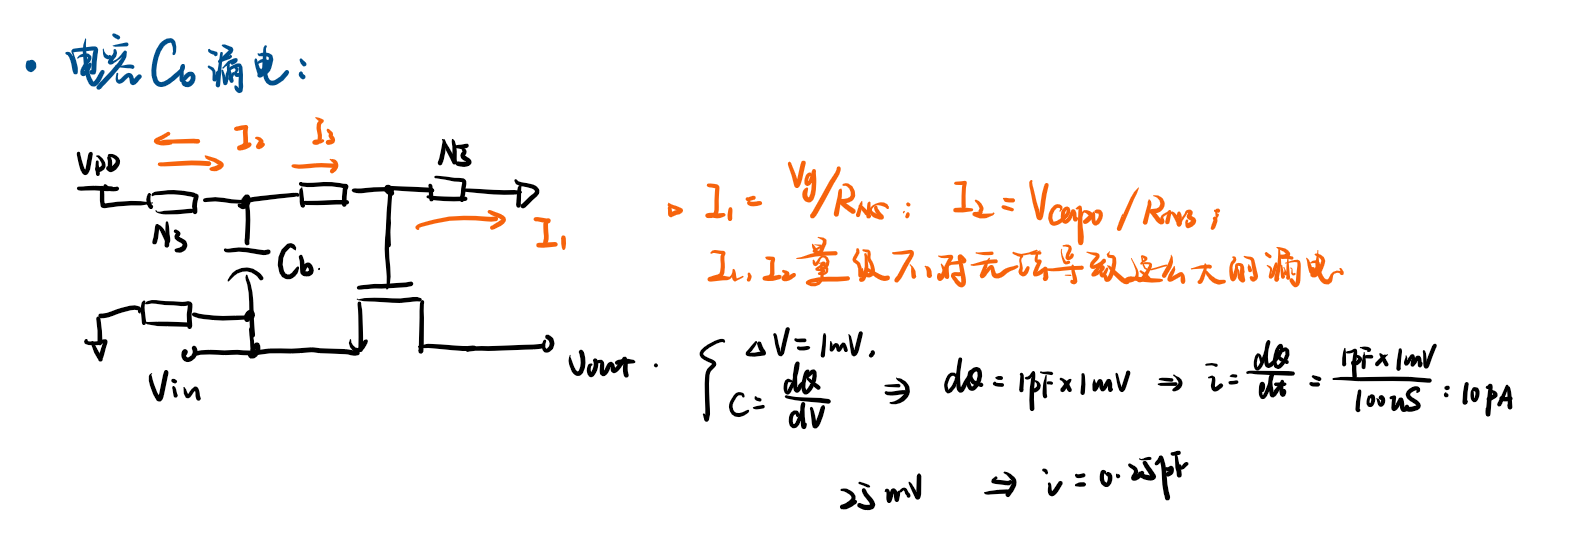 • 电容 Cb 漏电：
I₂ I₃
VDD N5
N3 I₁
Cb.
Vin Vout.
▷ I₁ = Vg/R_N5 ; I₂ = V_Capo / R_N3 ;
I₁, I₂ 量级不对无法导致这么大的漏电.
ΔV = 1mV.
C = dQ/dV ⇒ dQ = 1pF × 1mV ⇒ i = dQ/dt = 1pF × 1mV / 100nS : 10pA
25mV ⇒ i = 0.25pF